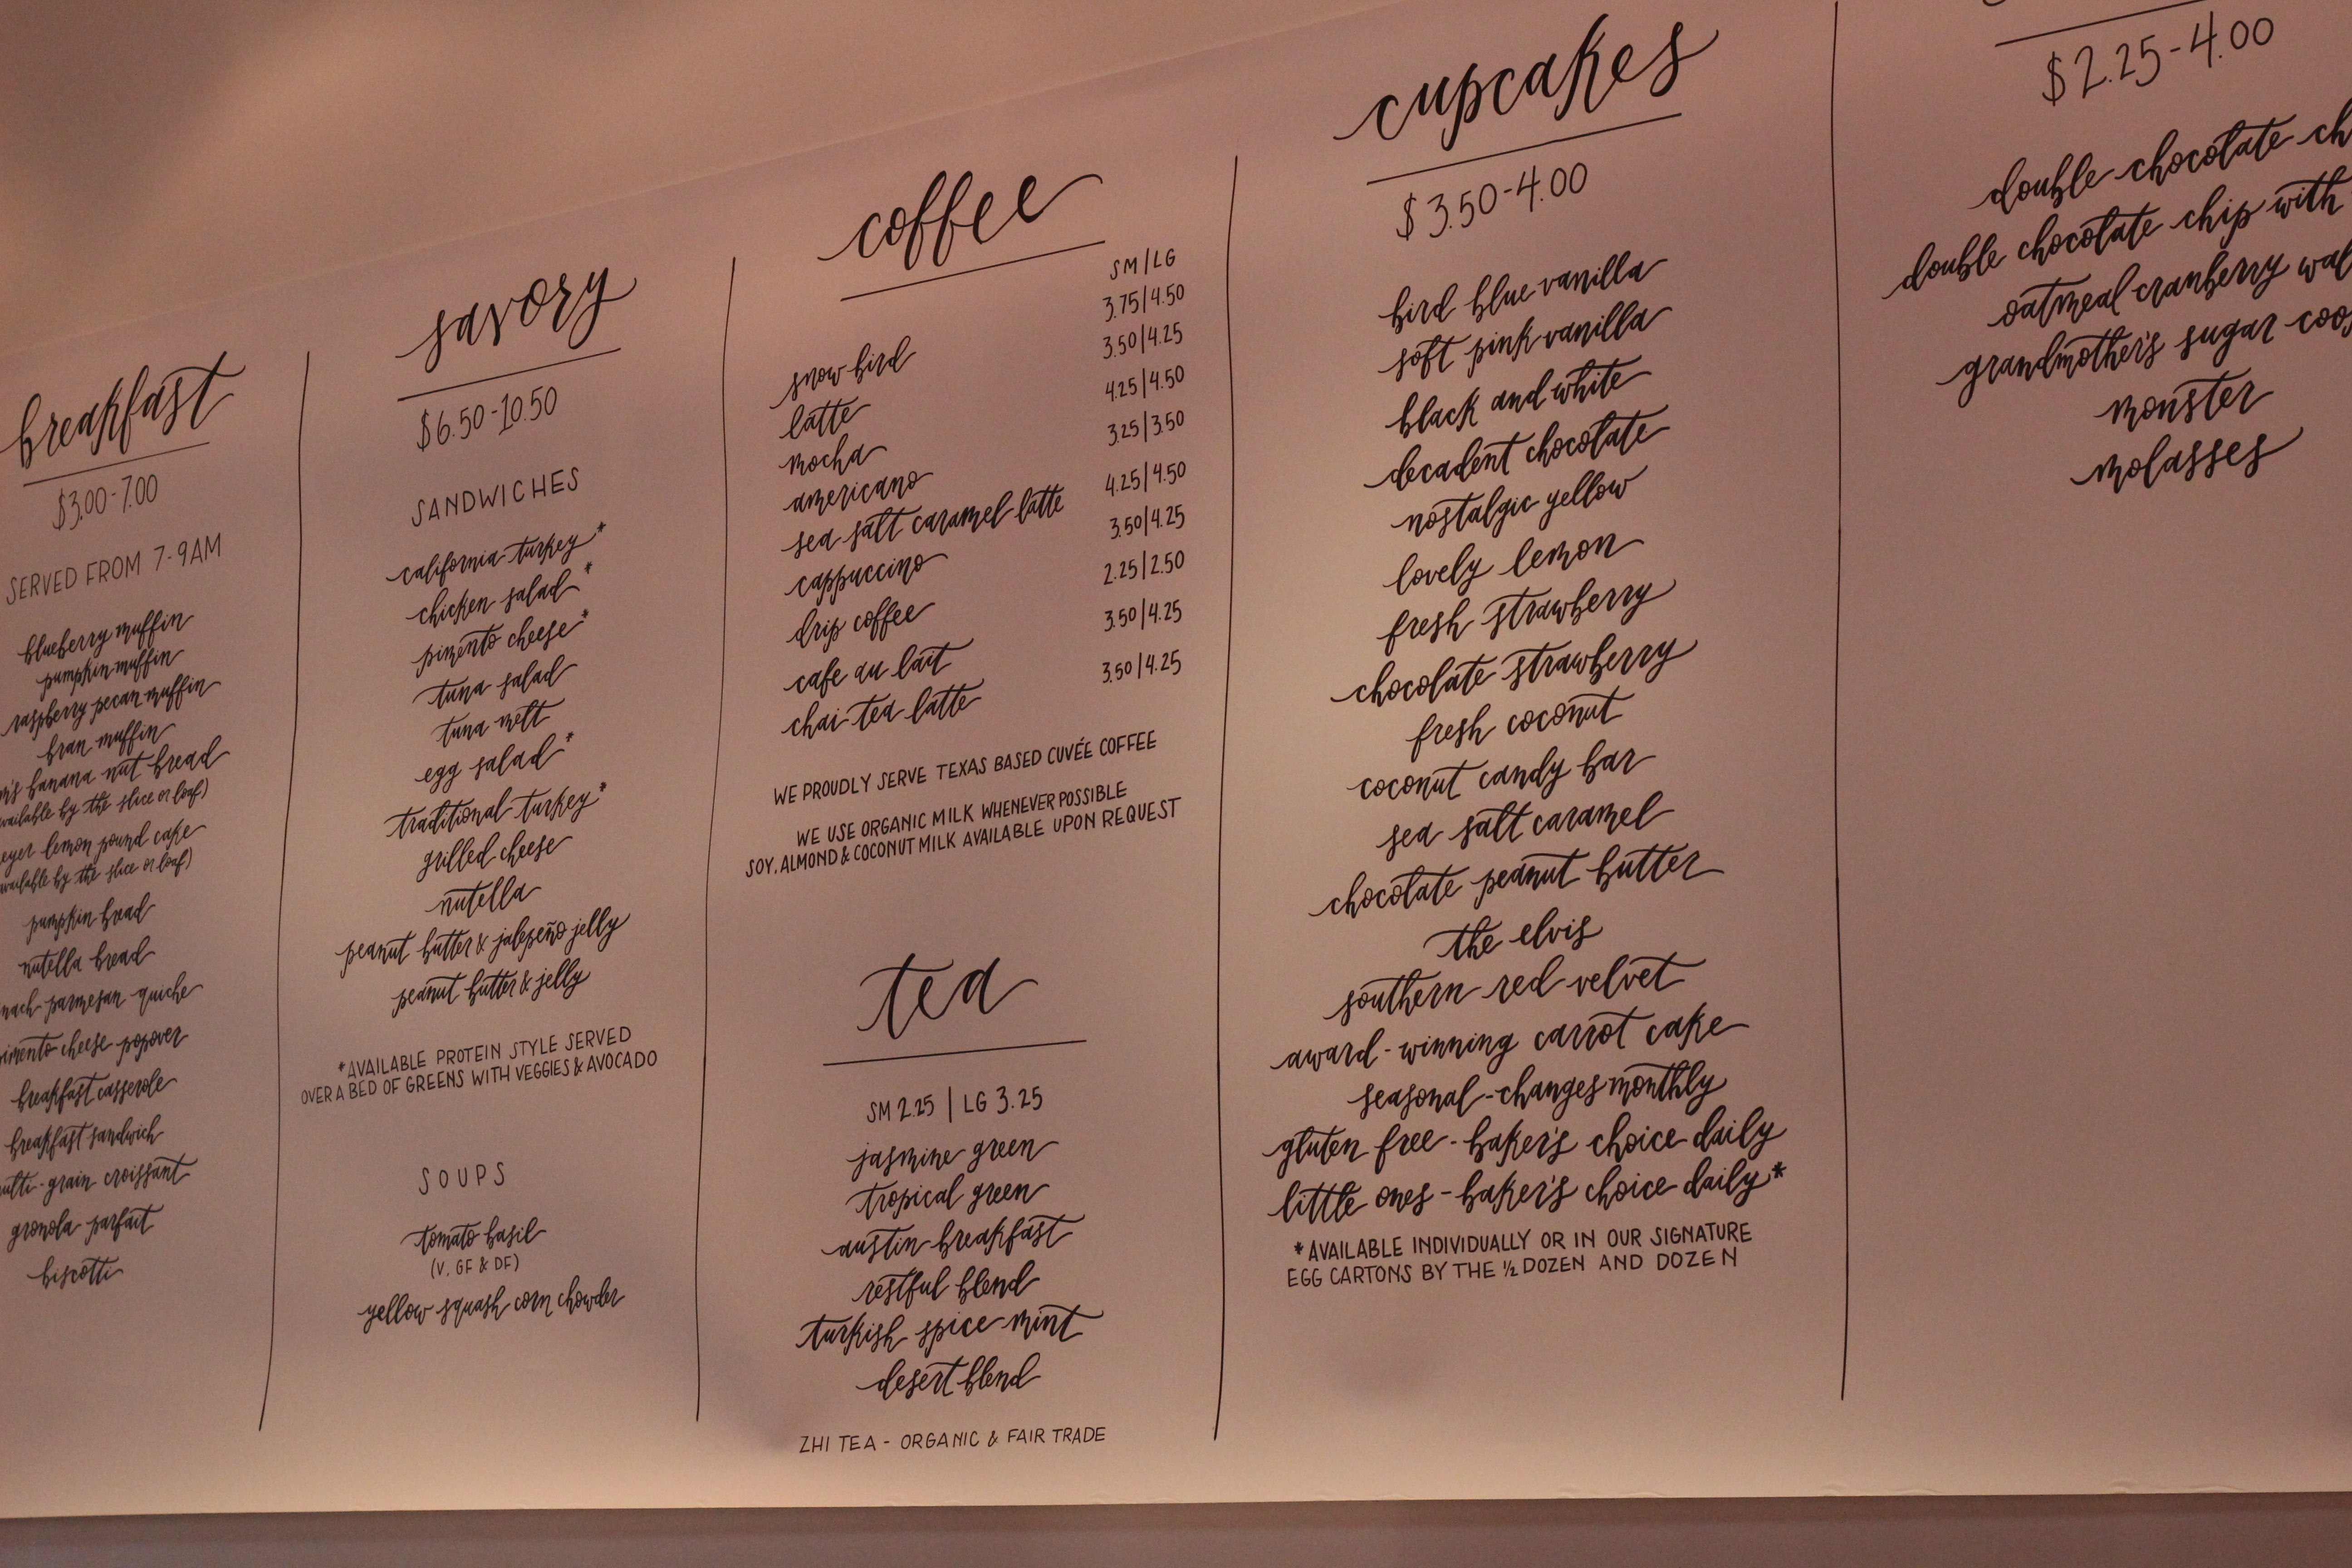 breakfast
$3.00-7.00
SERVED FROM 7-9AM
blueberry muffin
pumpkin muffin
raspberry pecan muffin
bran muffin
banana nut bread
by the slice or loaf)
lemon pound cake
by the slice or loaf)
pumpkin bread
nutella bread
parmesan quiche
cheese popover
breakfast casserole
breakfast sandwich
grain croissant
granola parfait
biscotti
savory
$6.50-10.50
SANDWICHES
california turkey*
chicken salad*
pimento cheese*
tuna salad
tuna melt
egg salad*
traditional turkey*
grilled cheese
nutella
peanut butter & jalepeño jelly
peanut butter & jelly
*AVAILABLE PROTEIN STYLE SERVED
OVER A BED OF GREENS WITH VEGGIES & AVOCADO
SOUPS
tomato basil
(V, GF & DF)
yellow squash corn chowder
coffee
SM/LG
snow bird 3.75|4.50
latte 3.50|4.25
mocha 4.25|4.50
americano 3.25|3.50
sea salt caramel latte 4.25|4.50
cappuccino 3.50|4.25
drip coffee 2.25|2.50
cafe au lait 3.50|4.25
chai tea latte 3.50|4.25
WE PROUDLY SERVE TEXAS BASED CUVÉE COFFEE
WE USE ORGANIC MILK WHENEVER POSSIBLE
SOY, ALMOND & COCONUT MILK AVAILABLE UPON REQUEST
tea
SM 2.25 | LG 3.25
jasmine green
tropical green
austin breakfast
restful blend
turkish spice mint
desert blend
ZHI TEA - ORGANIC & FAIR TRADE
cupcakes
$3.50-4.00
bird blue vanilla
soft pink vanilla
black and white
decadent chocolate
nostalgic yellow
lovely lemon
fresh strawberry
chocolate strawberry
fresh coconut
coconut candy bar
sea salt caramel
chocolate peanut butter
the elvis
southern red velvet
award-winning carrot cake
seasonal-changes monthly
gluten free - baker's choice daily
little ones - baker's choice daily*
*AVAILABLE INDIVIDUALLY OR IN OUR SIGNATURE
EGG CARTONS BY THE ½ DOZEN AND DOZEN
$2.25-4.00
double chocolate
double chocolate chip with
oatmeal cranberry
grandmother's sugar
monster
molasses